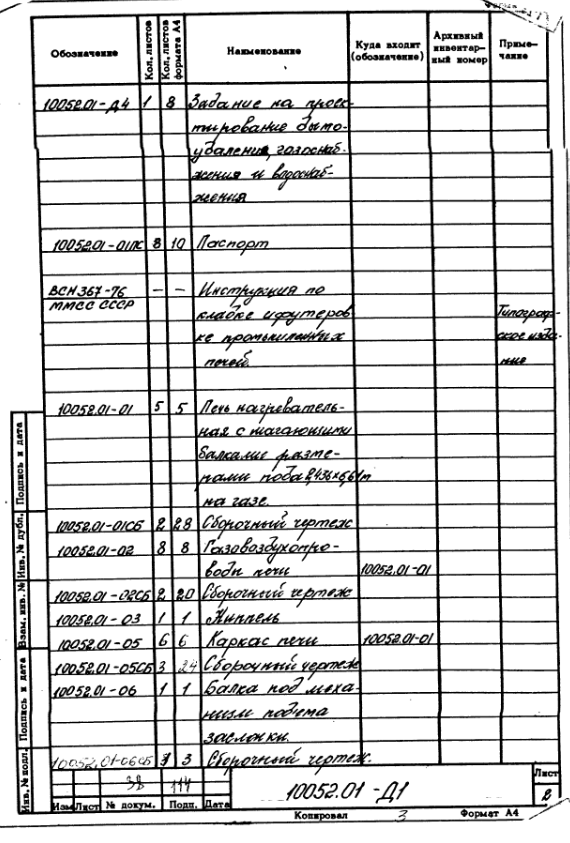 Обозначение Кол. листов Кол. листов формата А4 Наименование Куда входит (обозначение) Архивный инвентарный номер Примечание
10052.01-Д4 1 8 Задание на проек-
тирование дымо-
удаления, газоснаб-
жения и водоснаб-
жения
10052.01-01ПС 8 10 Паспорт
ВСН 367-76 — — Инструкция по
ММСС СССР кладке и футеров
ке промышленных Типограф-
печей. ское изда-
ние
10052.01-01 5 5 Печь нагреватель-
ная с шагающими
балками разме-
рами пода 2,436х6,61м
на газе.
10052.01-01СБ 2 28 Сборочный чертеж
10052.01-02 8 8 Газовоздухопро-
воды печи 10052.01-01
10052.01-02СБ 2 20 Сборочный чертеж
10052.01-03 1 1 Ниппель
10052.01-05 6 6 Каркас печи 10052.01-01
10052.01-05СБ 3 24 Сборочный чертеж
10052.01-06 1 1 Балка под меха-
низм подъема
заслонки.
10052.01-06СБ 1 3 Сборочный чертеж.
Инв. № подл. Подпись и дата Взам. инв. № Инв. № дубл. Подпись и дата
38 114
Изм Лист № докум. Подп. Дата
10052.01-Д1
Лист
2
Копировал 3 Формат А4